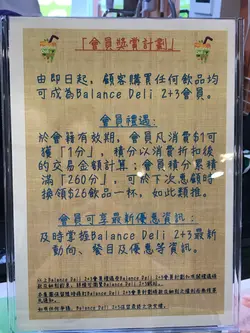 「會員獎賞計劃」
由即日起，顧客購買任何飲品均
可成為Balance Deli 2+3會員。
會員禮遇：
於會籍有效期，會員凡消費$1可
獲「1分」，積分以消費折扣後
的交易金額計算；會員積分累積
滿「260分」，可於下次惠顧時
換領$26飲品一杯，如此類推。
會員可享最新優惠資訊：
及時掌握Balance Deli 2+3最新
動向、餐目及優惠等資訊。